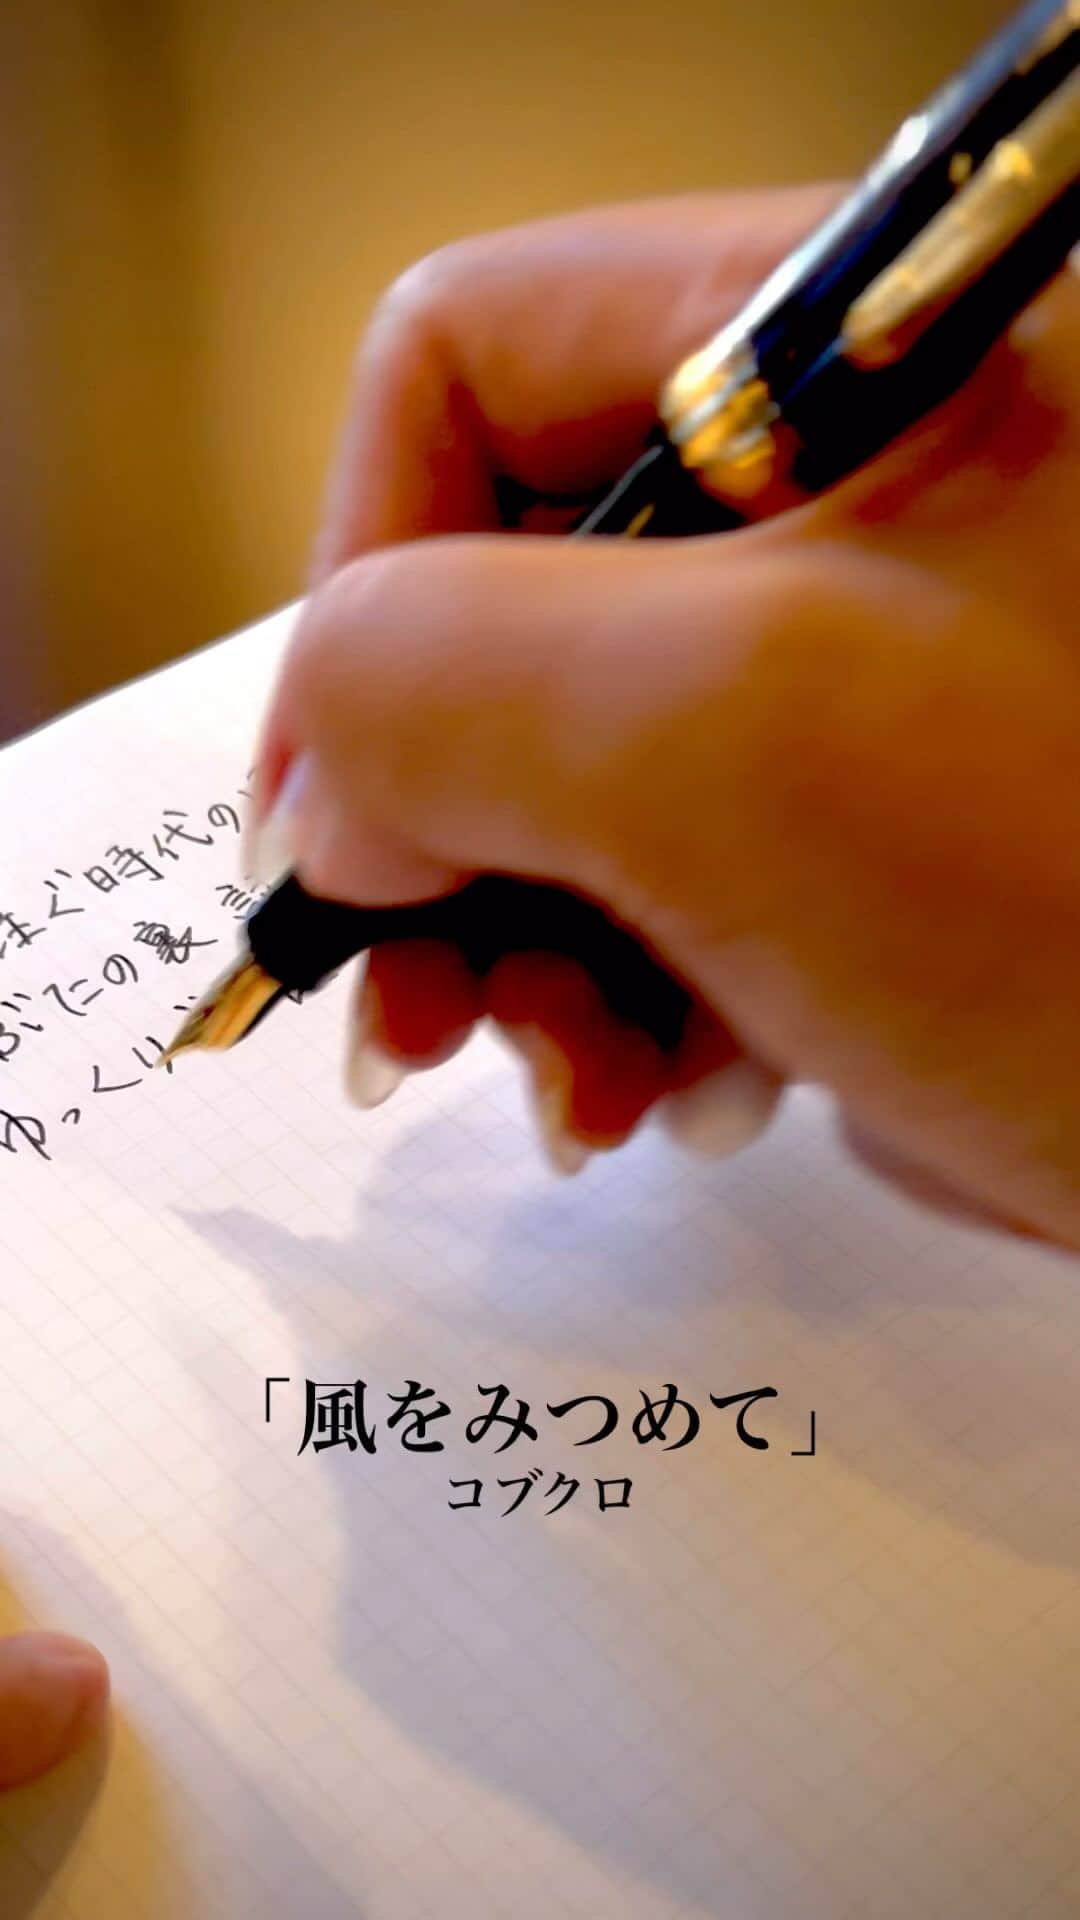 ぐ時代の
ぶたの裏
ゆっくり
「風をみつめて」
コブクロ